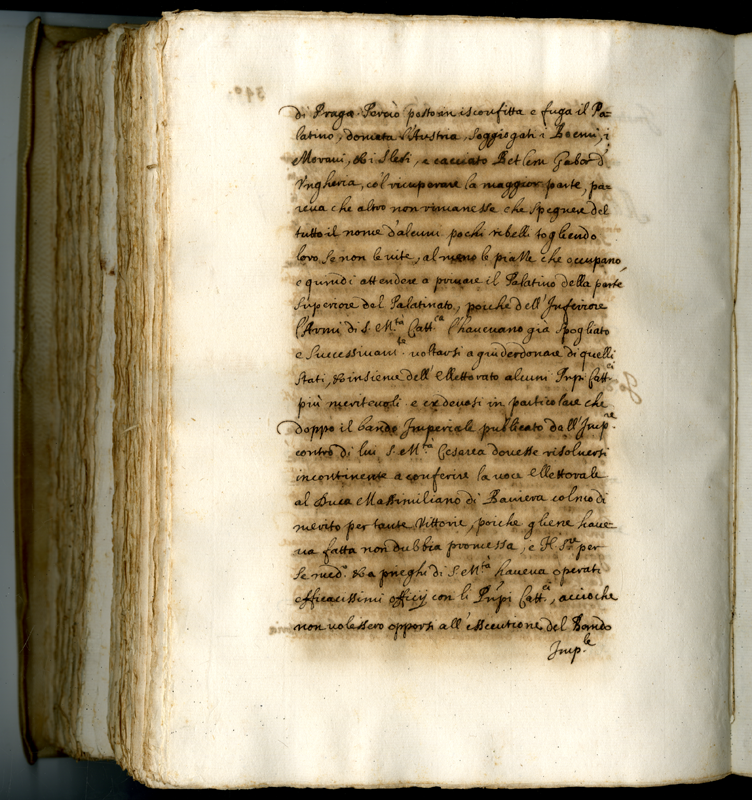 di Praga. Perciò posto in isconfitta e fuga il Pa-
latino, domata l'Austria, soggiogati i Boemi, i
Moravi, & i Slesi, e cacciato Betlem Gabor d'
Vngheria, co'l ricuperare la maggior parte, pa=
reua che altro non rimanesse che spegnere del
tutto il nome d'alcuni pochi ribelli togliendo
loro se non le vite, al meno le piazze che occupano,
e quindi attendere a priuare il Palatino della parte
superiore del Palatinato, poiche dell'Inferiore
l'Armi di S. M.tà Catt.ca l'haueuano già spogliato
e successiuam.te voltarsi a guiderdonare di quelli
stati, & insieme dell'Elettorato alcuni Pnpi Catt.ci
più meriteuoli. e credeuasi in particolare che
doppo il bando Imperiale publicato dall'Imp.re
contro di lui S. M.tà Cesarea douesse risoluersi
incontinente a conferire la voce Elettorale
al Duca Massimiliano di Bauiera colmo di
merito per tante Vittorie, poiche gliene haue-
ua fatta non dubbia promessa, e N. S.re per
se med.o & a prieghi di S. M.tà haueua operati
efficacissimi officij con li Pnpi Catt.ci, accioche
non volessero opporsi all'essecutione del Bando
Imp.le